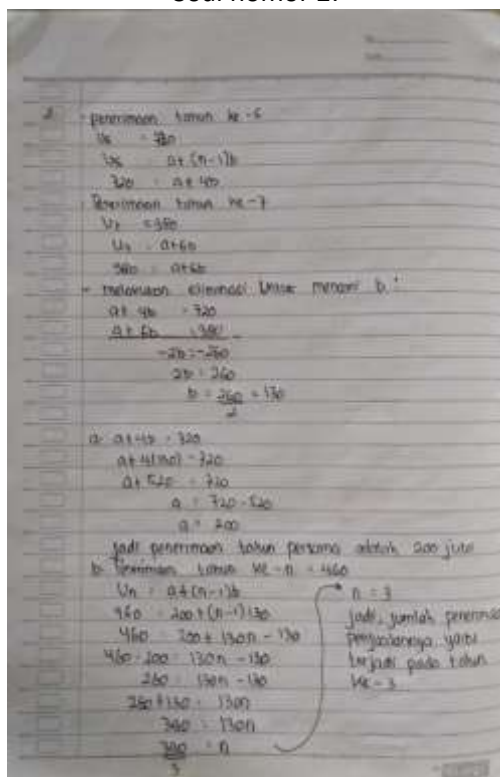 Soal nomor 2.
2 - Penerimaan tahun ke-5
U5 = 720
U5 = a+(n-1)b
720 = a+4b
- Penerimaan tahun ke-7
U7 = 980
U7 = a+6b
980 = a+6b
- melakukan eliminasi untuk mencari b :
a+4b = 720
a+6b = 980 -
-2b = -260
2b = 260
b = 260 = 130
2
a. a+4b = 720
a+4(130) = 720
a+520 = 720
a = 720-520
a = 200
jadi penerimaan tahun pertama adalah 200 juta
b. Penerimaan tahun ke-n = 460
Un = a+(n-1)b
460 = 200+(n-1)130
460 = 200+130n-130
460-200 = 130n-130
260 = 130n-130
260+130 = 130n
390 = 130n
390 = n
n = 3
jadi, jumlah penerimaan
penjualannya yaitu
terjadi pada tahun
ke-3